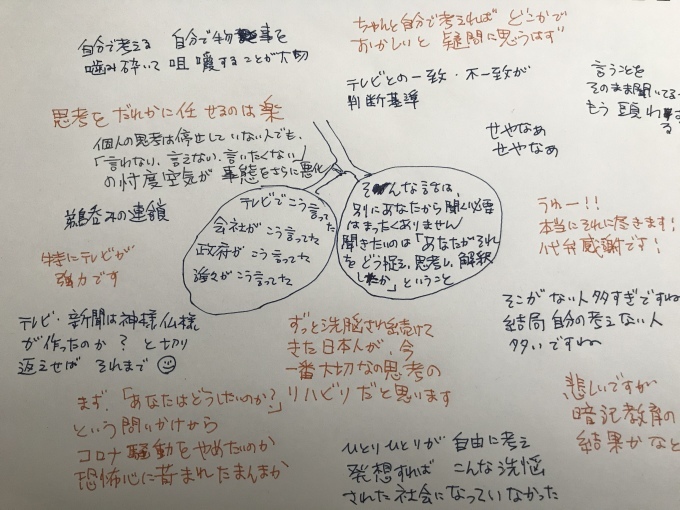 自分で考える 自分で物事を
噛み砕いて 咀嚼することが大切
ちゃんと自分で考えれば どこかで
おかしいと 疑問に思うはず
テレビとの一致・不一致が
判断基準
言うことを
そのまま聞いてる
もう 頭わ
る
せやなぁ
せやなぁ
思考をだれかに任せるのは楽
個人の思考は停止していない人でも、
「言わない、言えない、言いたくない」
の忖度空気が 事態をさらに悪化
鵜呑みの連鎖
特にテレビが
強力です
テレビでこう言ってた
会社がこう言ってた
政府がこう言ってた
誰々がこう言ってた
そんな話は、
別にあなたから聞く必要
はまったくありません
聞きたいのは「あなたがそれ
をどう捉え、思考し、解釈
したか」ということ
うゎー!!
本当にそれに尽きます!
代弁感謝です!
テレビ・新聞は神様仏様
が作ったのか? と切り
返えせば それまで
ずっと洗脳され続けて
きた日本人が、今
一番大切なの思考の
リハビリだと思います
そこがない人多すぎですね
結局自分の考えない人
多いですね
まず、「あなたはどうしたいのか?」
という問いかけから
コロナ騒動をやめたいのか
恐怖心に苛まれたまんまか
悲しいですが
暗記教育の
結果かなと
ひとりひとりが自由に考え
発想すれば こんな洗悩
された社会になっていなかった